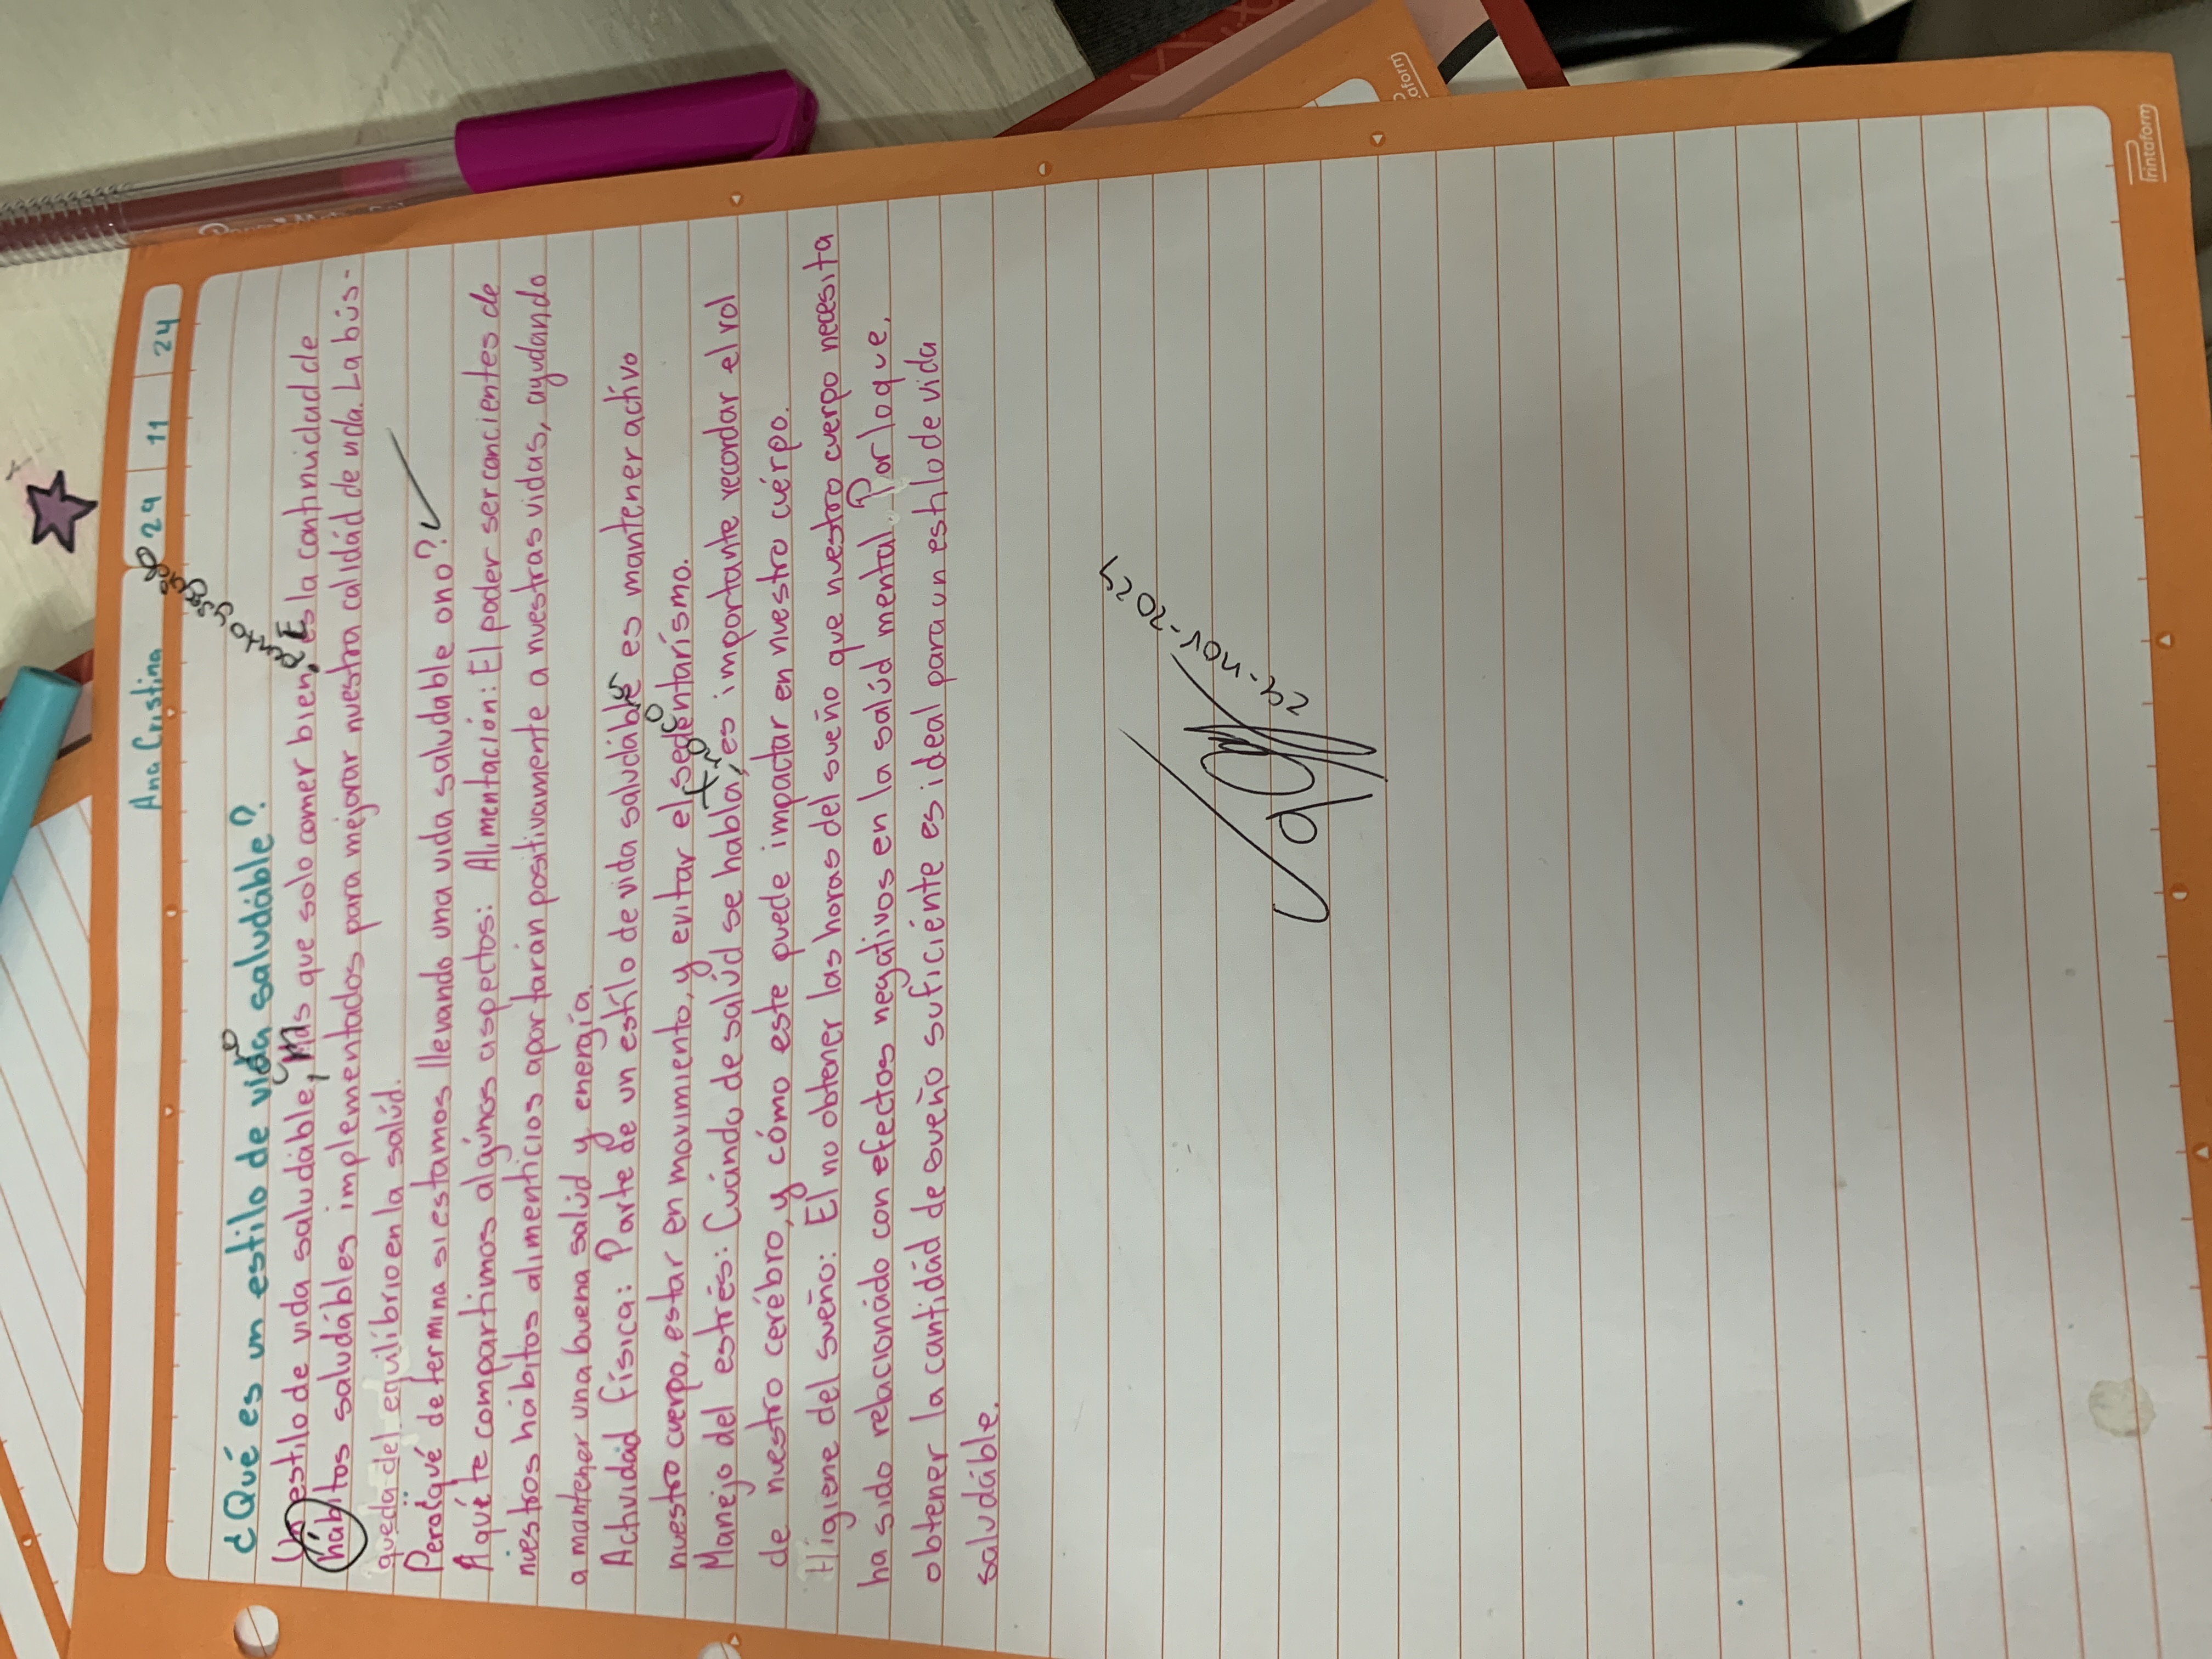 Ana Cristina 29 11 24
punto y seguido
¿Qué es un estilo de vida saludáble?
Un estilo de vida saludáble, más que solo comer bien. Es la continuidad de
hábitos saludábles implementados para mejorar nuestra calidád de vida. La bús-
queda del equilíbrio en la salúd.
Pero ¿qué determina si estamos llevando una vida saludable o no?
Aquí te compartimos algúnos aspectos: Alimentación: El poder ser concientes de
nuestros hábitos alimenticios aportarán positivamente a nuestras vidas, ayudando
a mantener una buena salúd y energía.
Actividad física: Parte de un estílo de vida saludáble es mantener activo
nuestro cuerpo, estar en movimiento, y evitar el sedentarísmo.
Manejo del estrés: Cuándo de salúd se habla, es importante recordar el rol
de nuestro cerébro, y cómo este puede impactar en nuestro cuérpo.
Higiene del sueño: El no obtener las horas del sueño que nuestro cuerpo necesita
ha sido relacionádo con efectos negátivos en la salúd mental. Por lo que,
obtener la cantidád de sueño suficiénte es ideal para un estílo de vida
saludáble.
29-nov-2024
Printaform
Printaform